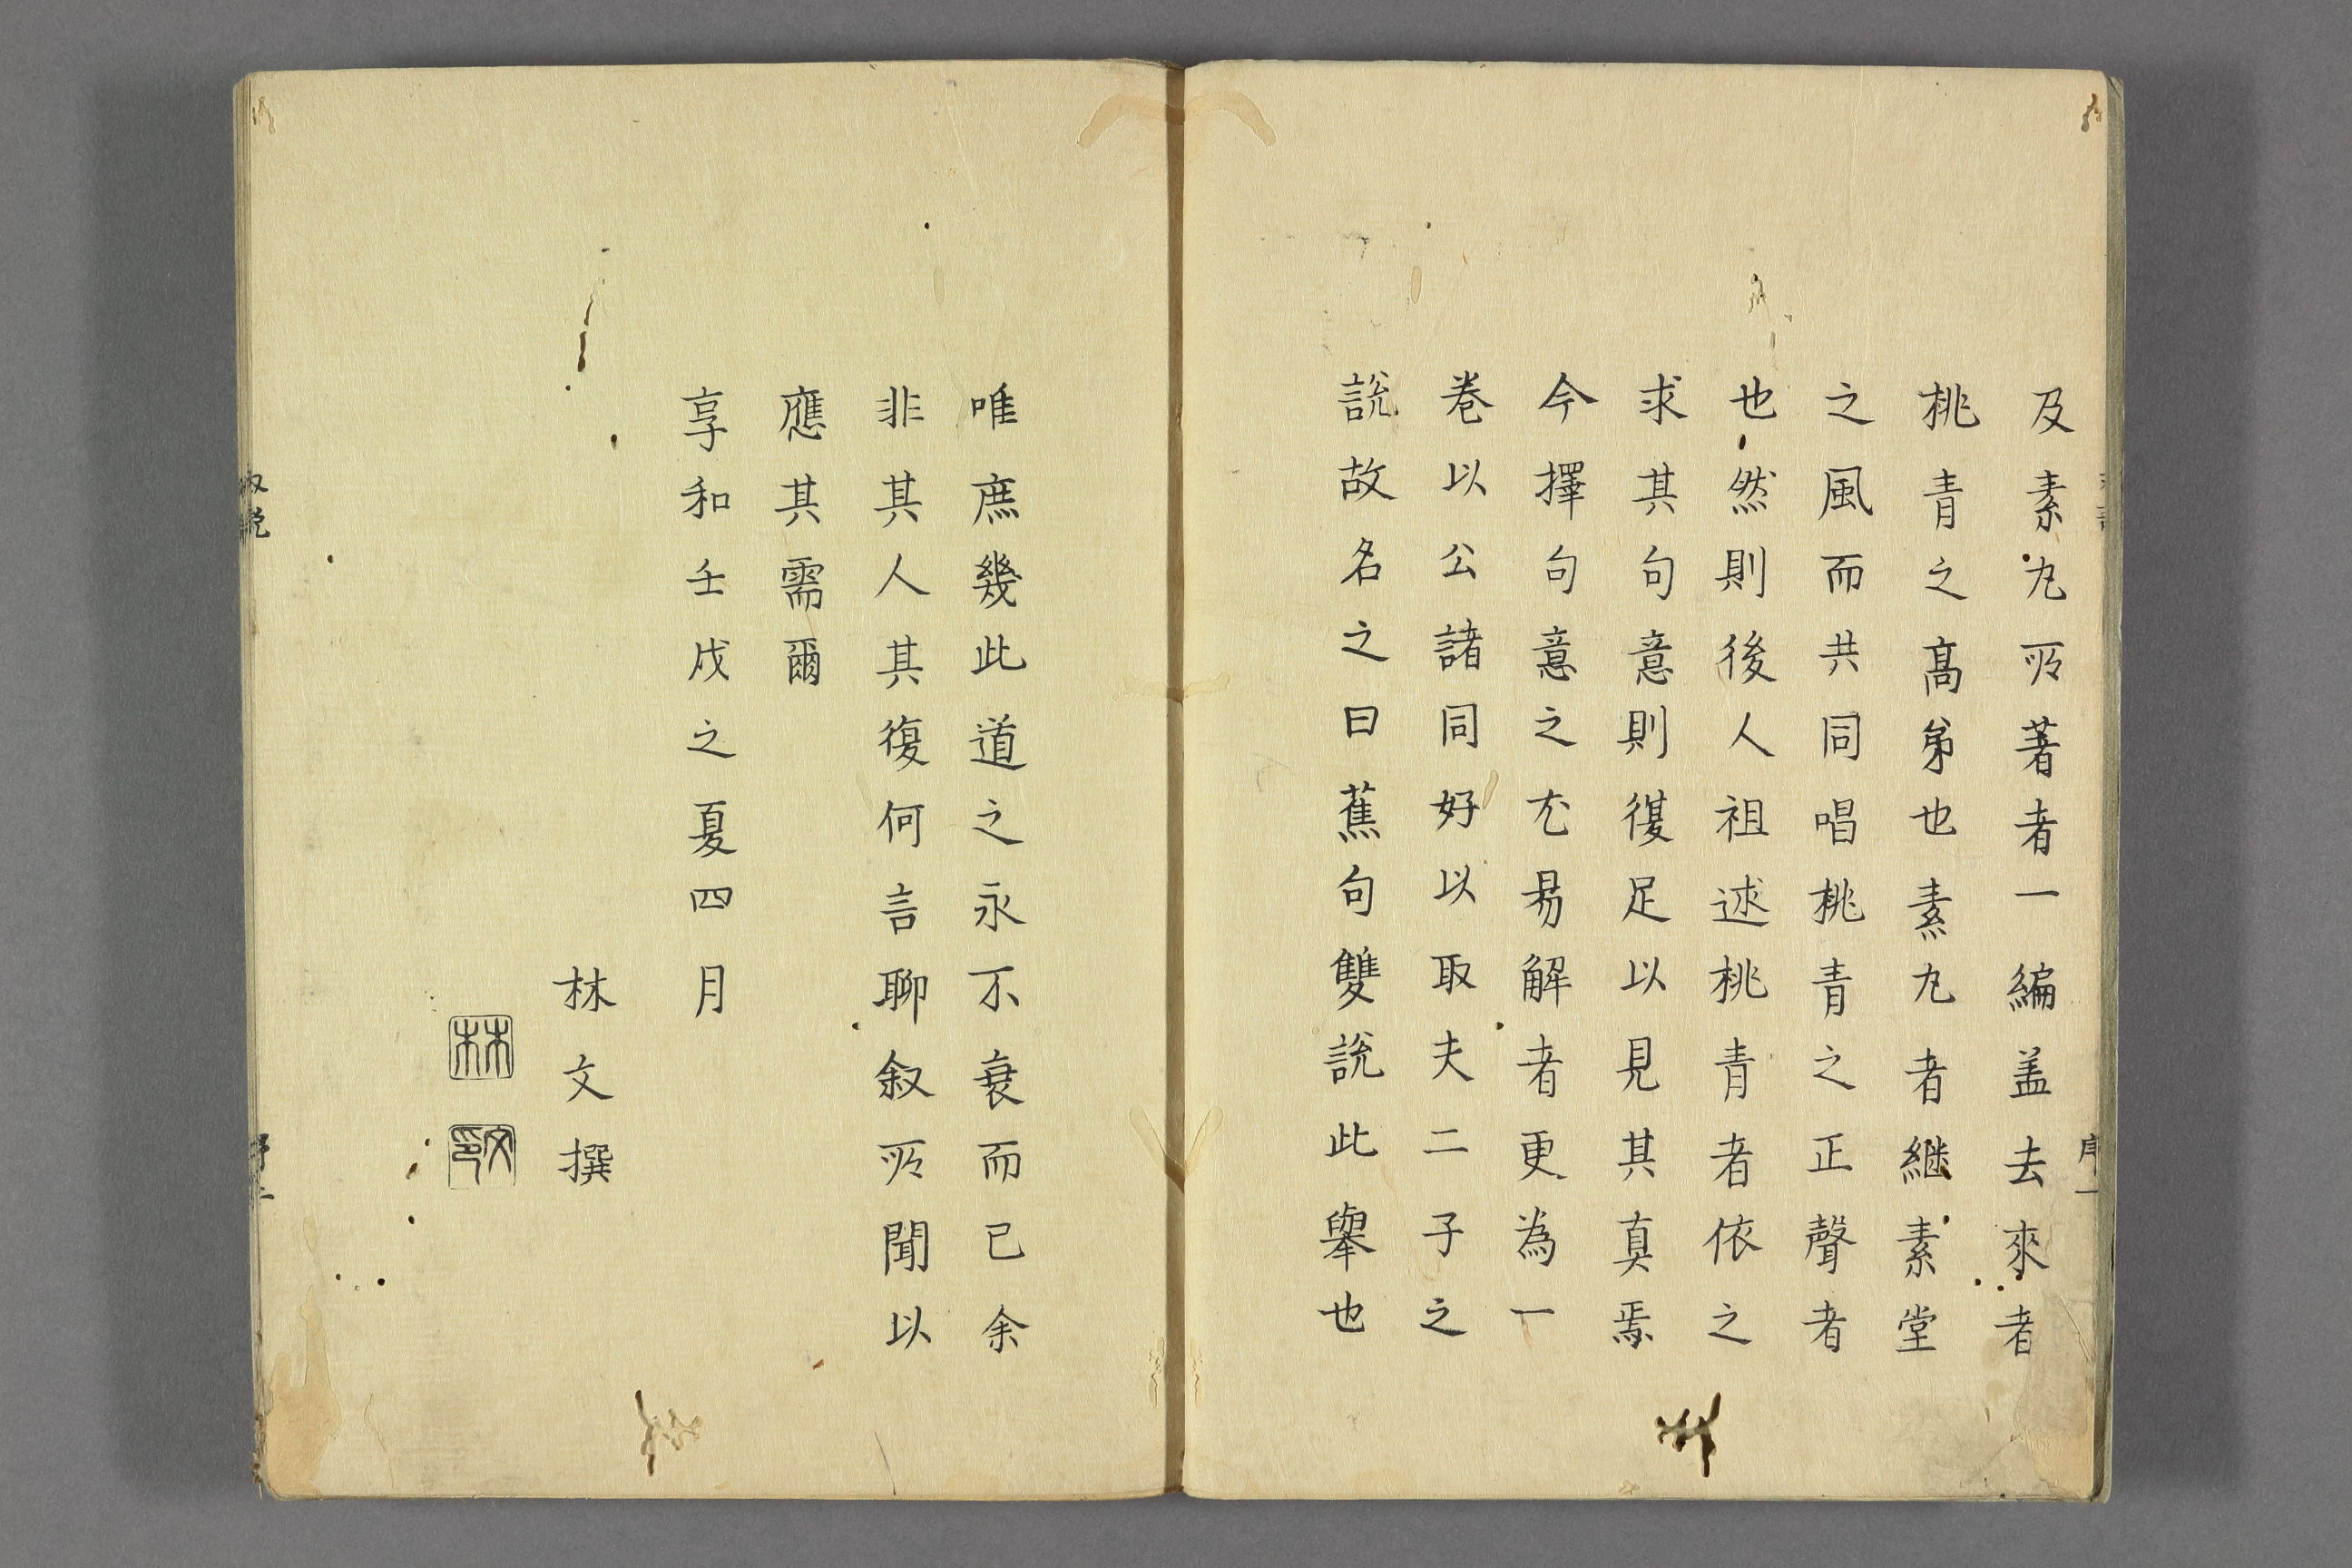 及素丸所著者一編盖去來者
桃青之高弟也素丸者継素堂
之風而共同唱桃青之正聲者
也然則後人祖述桃青者依之
求其句意則復足以見其真焉
今擇句意之尤易解者更為一
巻以公諸同好以取夫二子之
説故名之曰蕉句雙説此舉也
序一
唯庶幾此道之永不衰而已余
非其人其復何言聊叙所聞以
應其需爾
享和壬戌之夏四月
林文撰
林
文印
序二